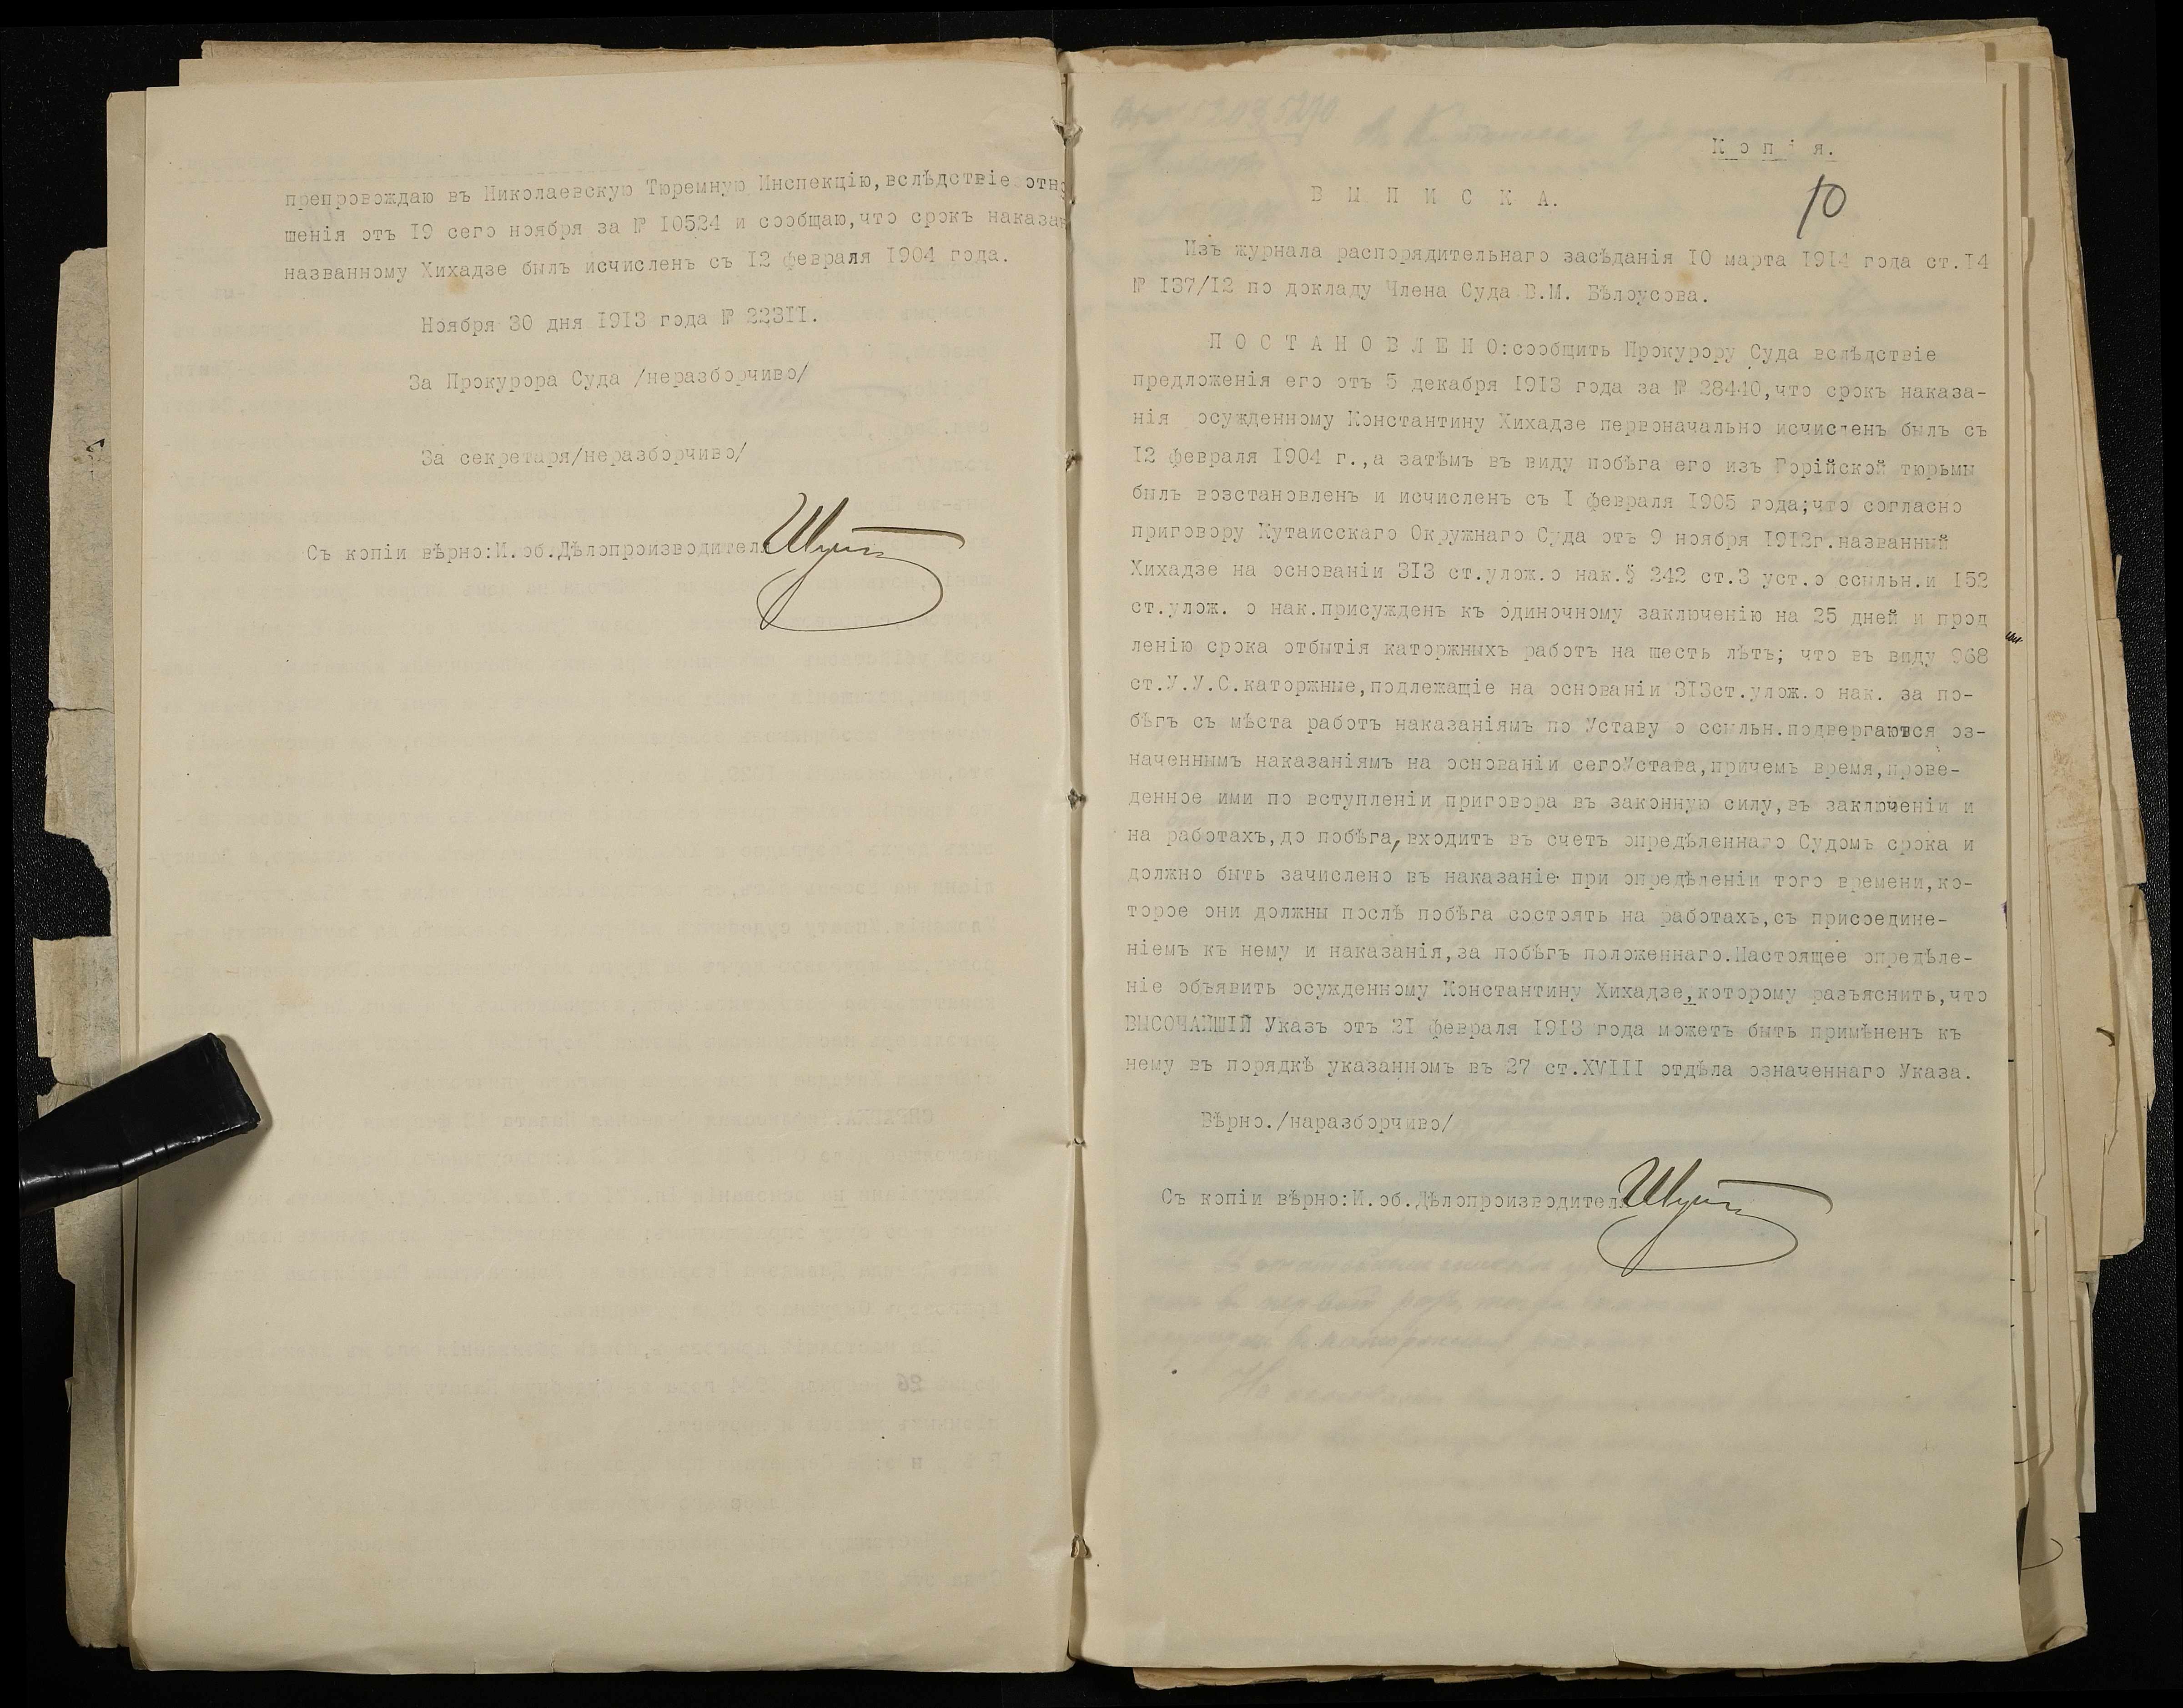 препровождаю въ Николаевскую Тюремную Инспекцію,вслѣдствіе отно
шенія отъ 19 сего ноября за № 10524 и сообщаю,что срокъ наказан
названному Хихадзе былъ исчисленъ съ 12 февраля 1904 года.
Ноября 30 дня 1913 года № 22311.
За Прокурора Суда /неразборчиво/
За секретаря/неразборчиво/
Съ копіи вѣрно:И.об.Дѣлопроизводителя
Копія.
10
ВЫПИСКА.
Изъ журнала распорядительнаго засѣданія 10 марта 1914 года ст.14
№ 137/12 по докладу Члена Суда В.М. Бѣлоусова.
ПОСТАНОВЛЕНО:сообщить Прокурору Суда вслѣдствіе
предложенія его отъ 5 декабря 1913 года за № 28440,что срокъ наказа-
нія осужденному Константину Хихадзе первоначально исчисленъ былъ съ
12 февраля 1904 г.,а затѣмъ въ виду побѣга его изъ Горійской тюрьмы
былъ возстановленъ и исчисленъ съ 1 февраля 1905 года;что согласно
приговору Кутаисскаго Окружнаго Суда отъ 9 ноября 1912г.названный
Хихадзе на основаніи 313 ст.улож.о нак.§ 242 ст.3 уст.о ссыльн.и 152
ст.улож. о нак.присужденъ къ одиночному заключенію на 25 дней и прод
ленію срока отбытія каторжныхъ работъ на шесть лѣтъ; что въ виду 968
ст.У.У.С.каторжные,подлежащіе на основаніи 313ст.улож.о нак. за по-
бѣгъ съ мѣста работъ наказаніямъ по Уставу о ссыльн.подвергаются оз-
наченнымъ наказаніямъ на основаніи сегоУстава,причемъ время,прове-
денное ими по вступленіи приговора въ законную силу,въ заключеніи и
на работахъ,до побѣга,входитъ въ счетъ опредѣленнаго Судомъ срока и
должно быть зачислено въ наказаніе при опредѣленіи того времени,ко-
торое они должны послѣ побѣга состоять на работахъ,съ присоедине-
ніемъ къ нему и наказанія,за побѣгъ положеннаго.Настоящее опредѣле-
ніе объявить осужденному Константину Хихадзе,которому разъяснить,что
ВЫСОЧАЙШІЙ Указъ отъ 21 февраля 1913 года можетъ быть примѣненъ къ
нему въ порядкѣ указанномъ въ 27 ст.XVIII отдѣла означеннаго Указа.
Вѣрно./наразборчиво/
Съ копіи вѣрно:И.об.Дѣлопроизводителя